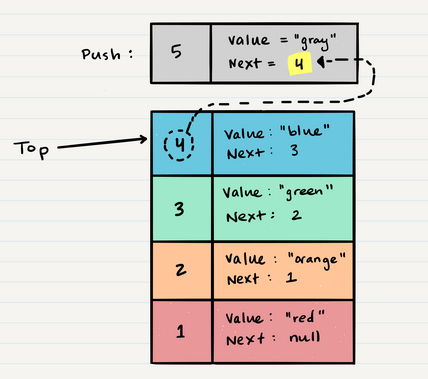 Push :
5
Value = "gray"
Next = 4
Top
4
Value : "blue"
Next : 3
3
Value : "green"
Next : 2
2
Value : "orange"
Next : 1
1
Value : "red"
Next : null